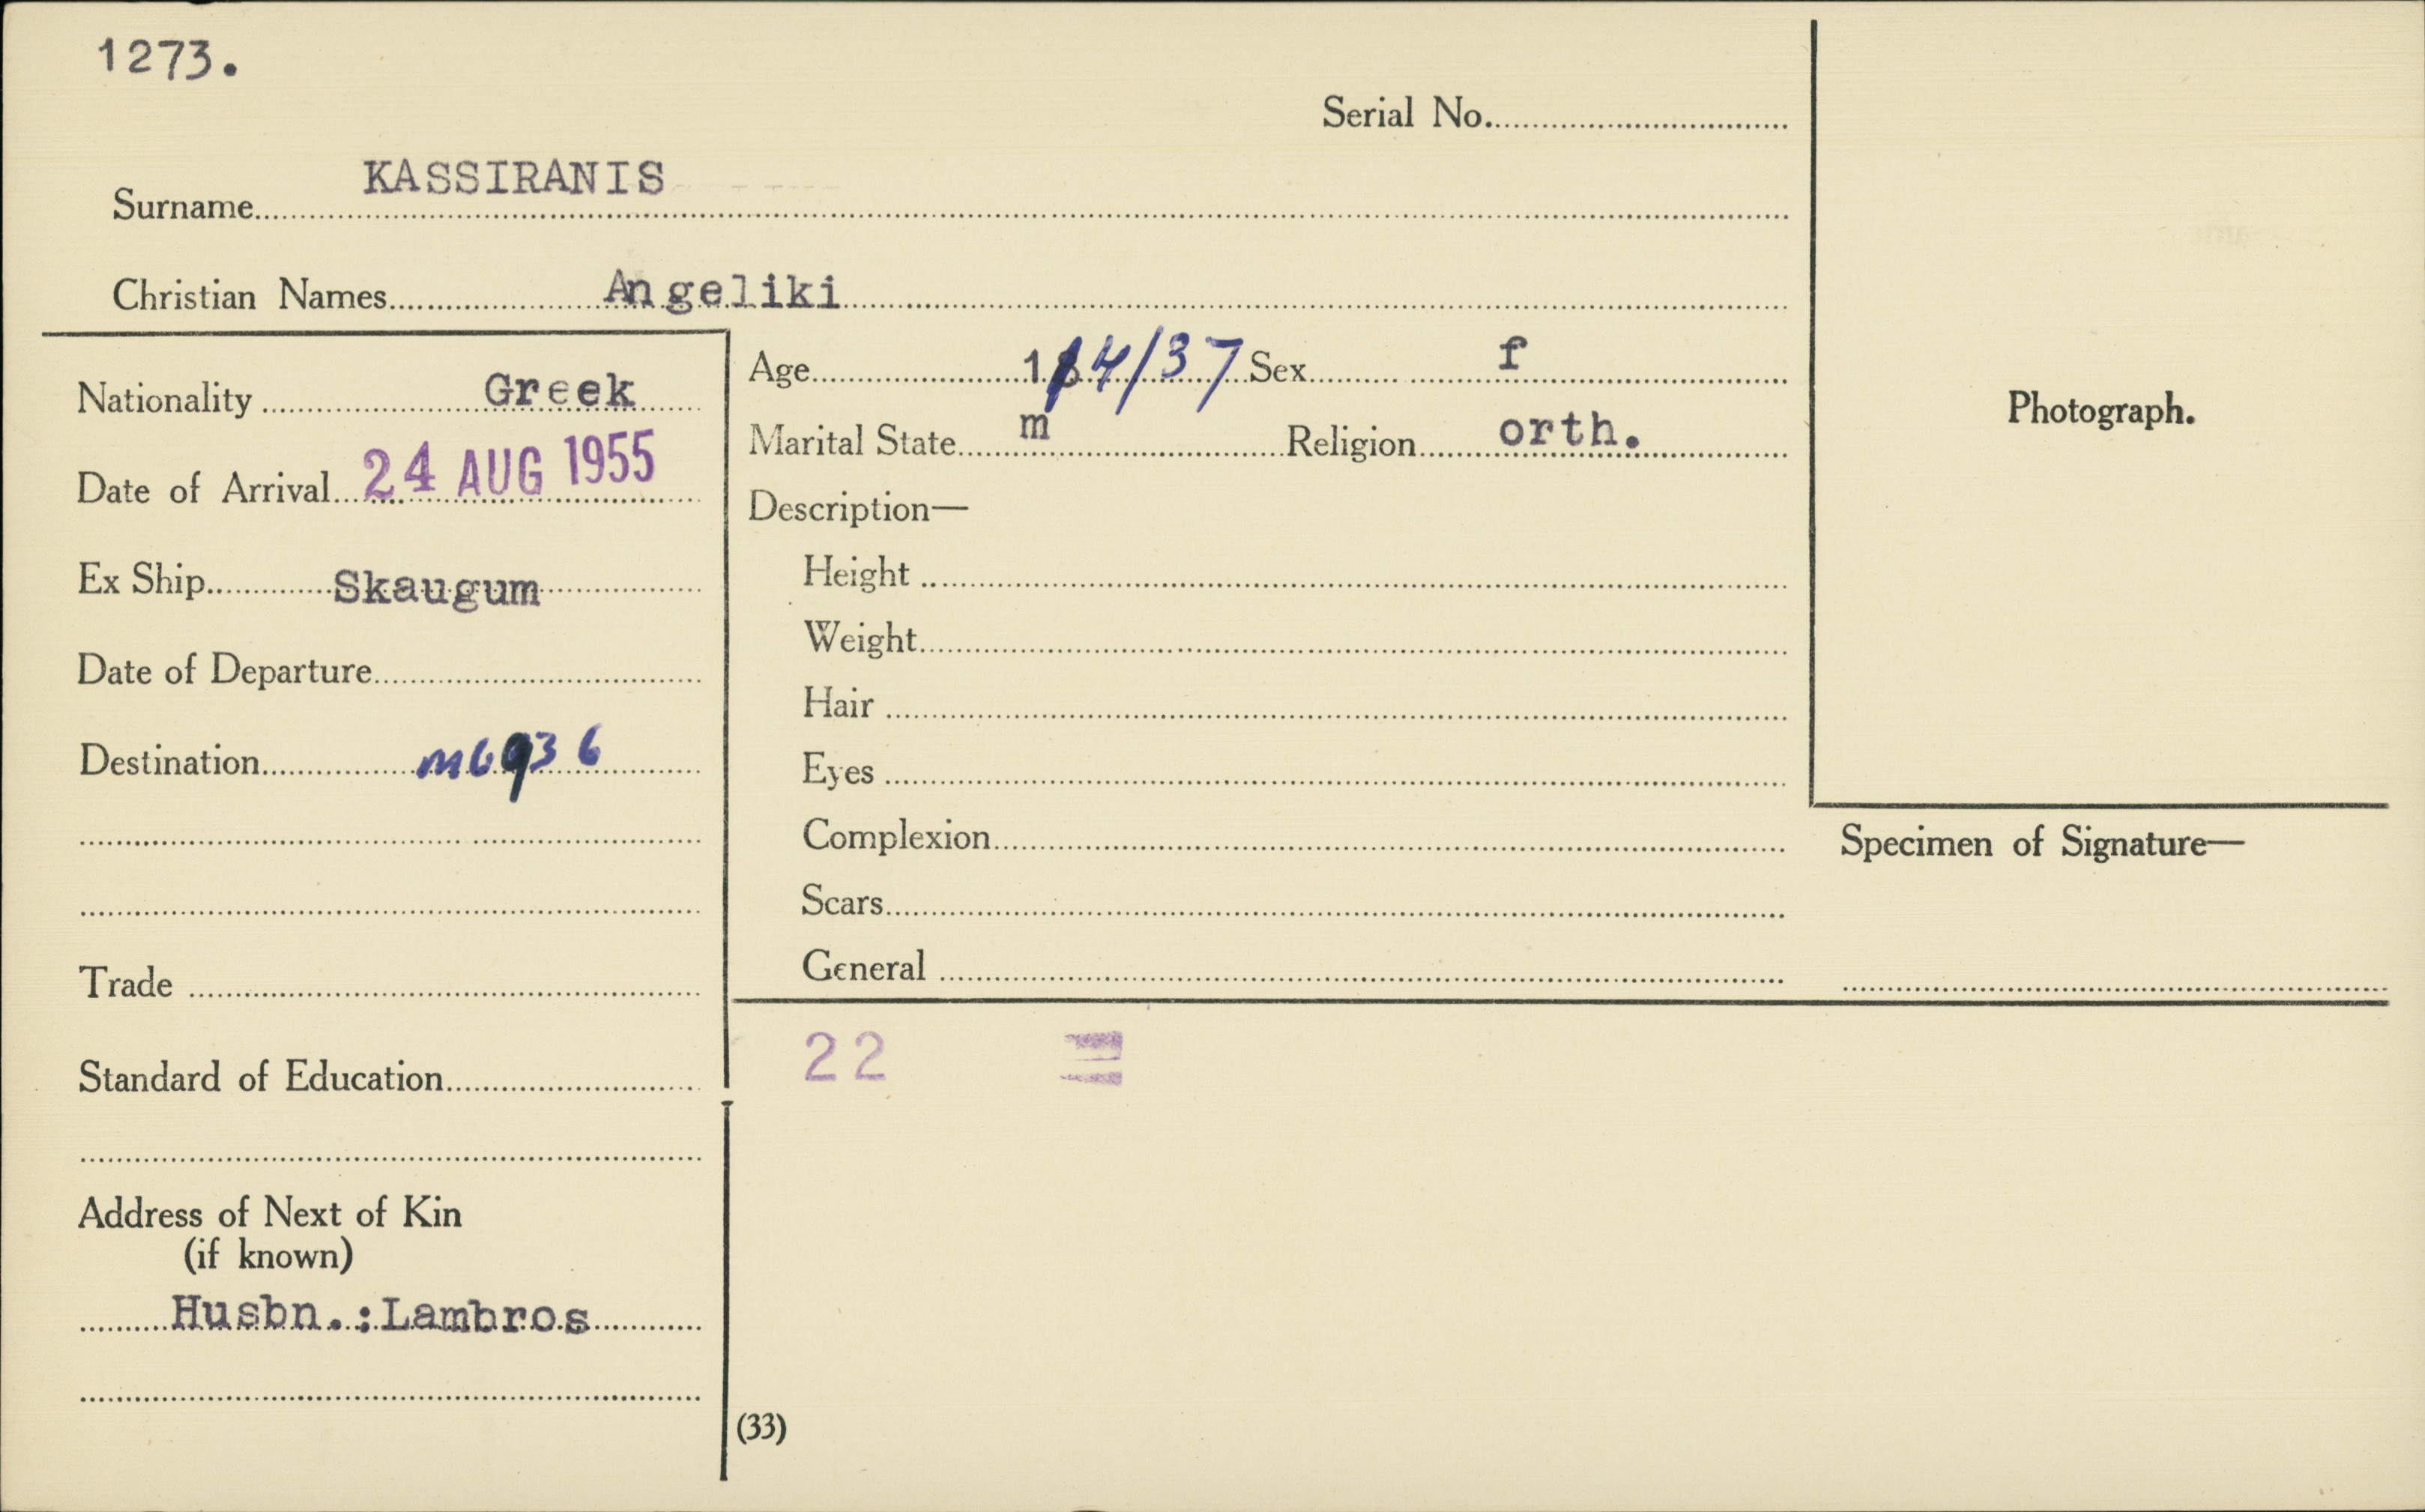 1273.
Serial No.
Surname KASSIRANIS
Christian Names Angeliki
Nationality Greek
Date of Arrival 24 AUG 1955
Ex Ship Skaugum
Date of Departure
Destination M6936
Trade
Standard of Education
Address of Next of Kin
(if known)
Husbn.:Lambros
Age 1/4/37 Sex f
Marital State m Religion orth.
Description—
Height
Weight
Hair
Eyes
Complexion
Scars
General
22
(33)
Photograph.
Specimen of Signature—